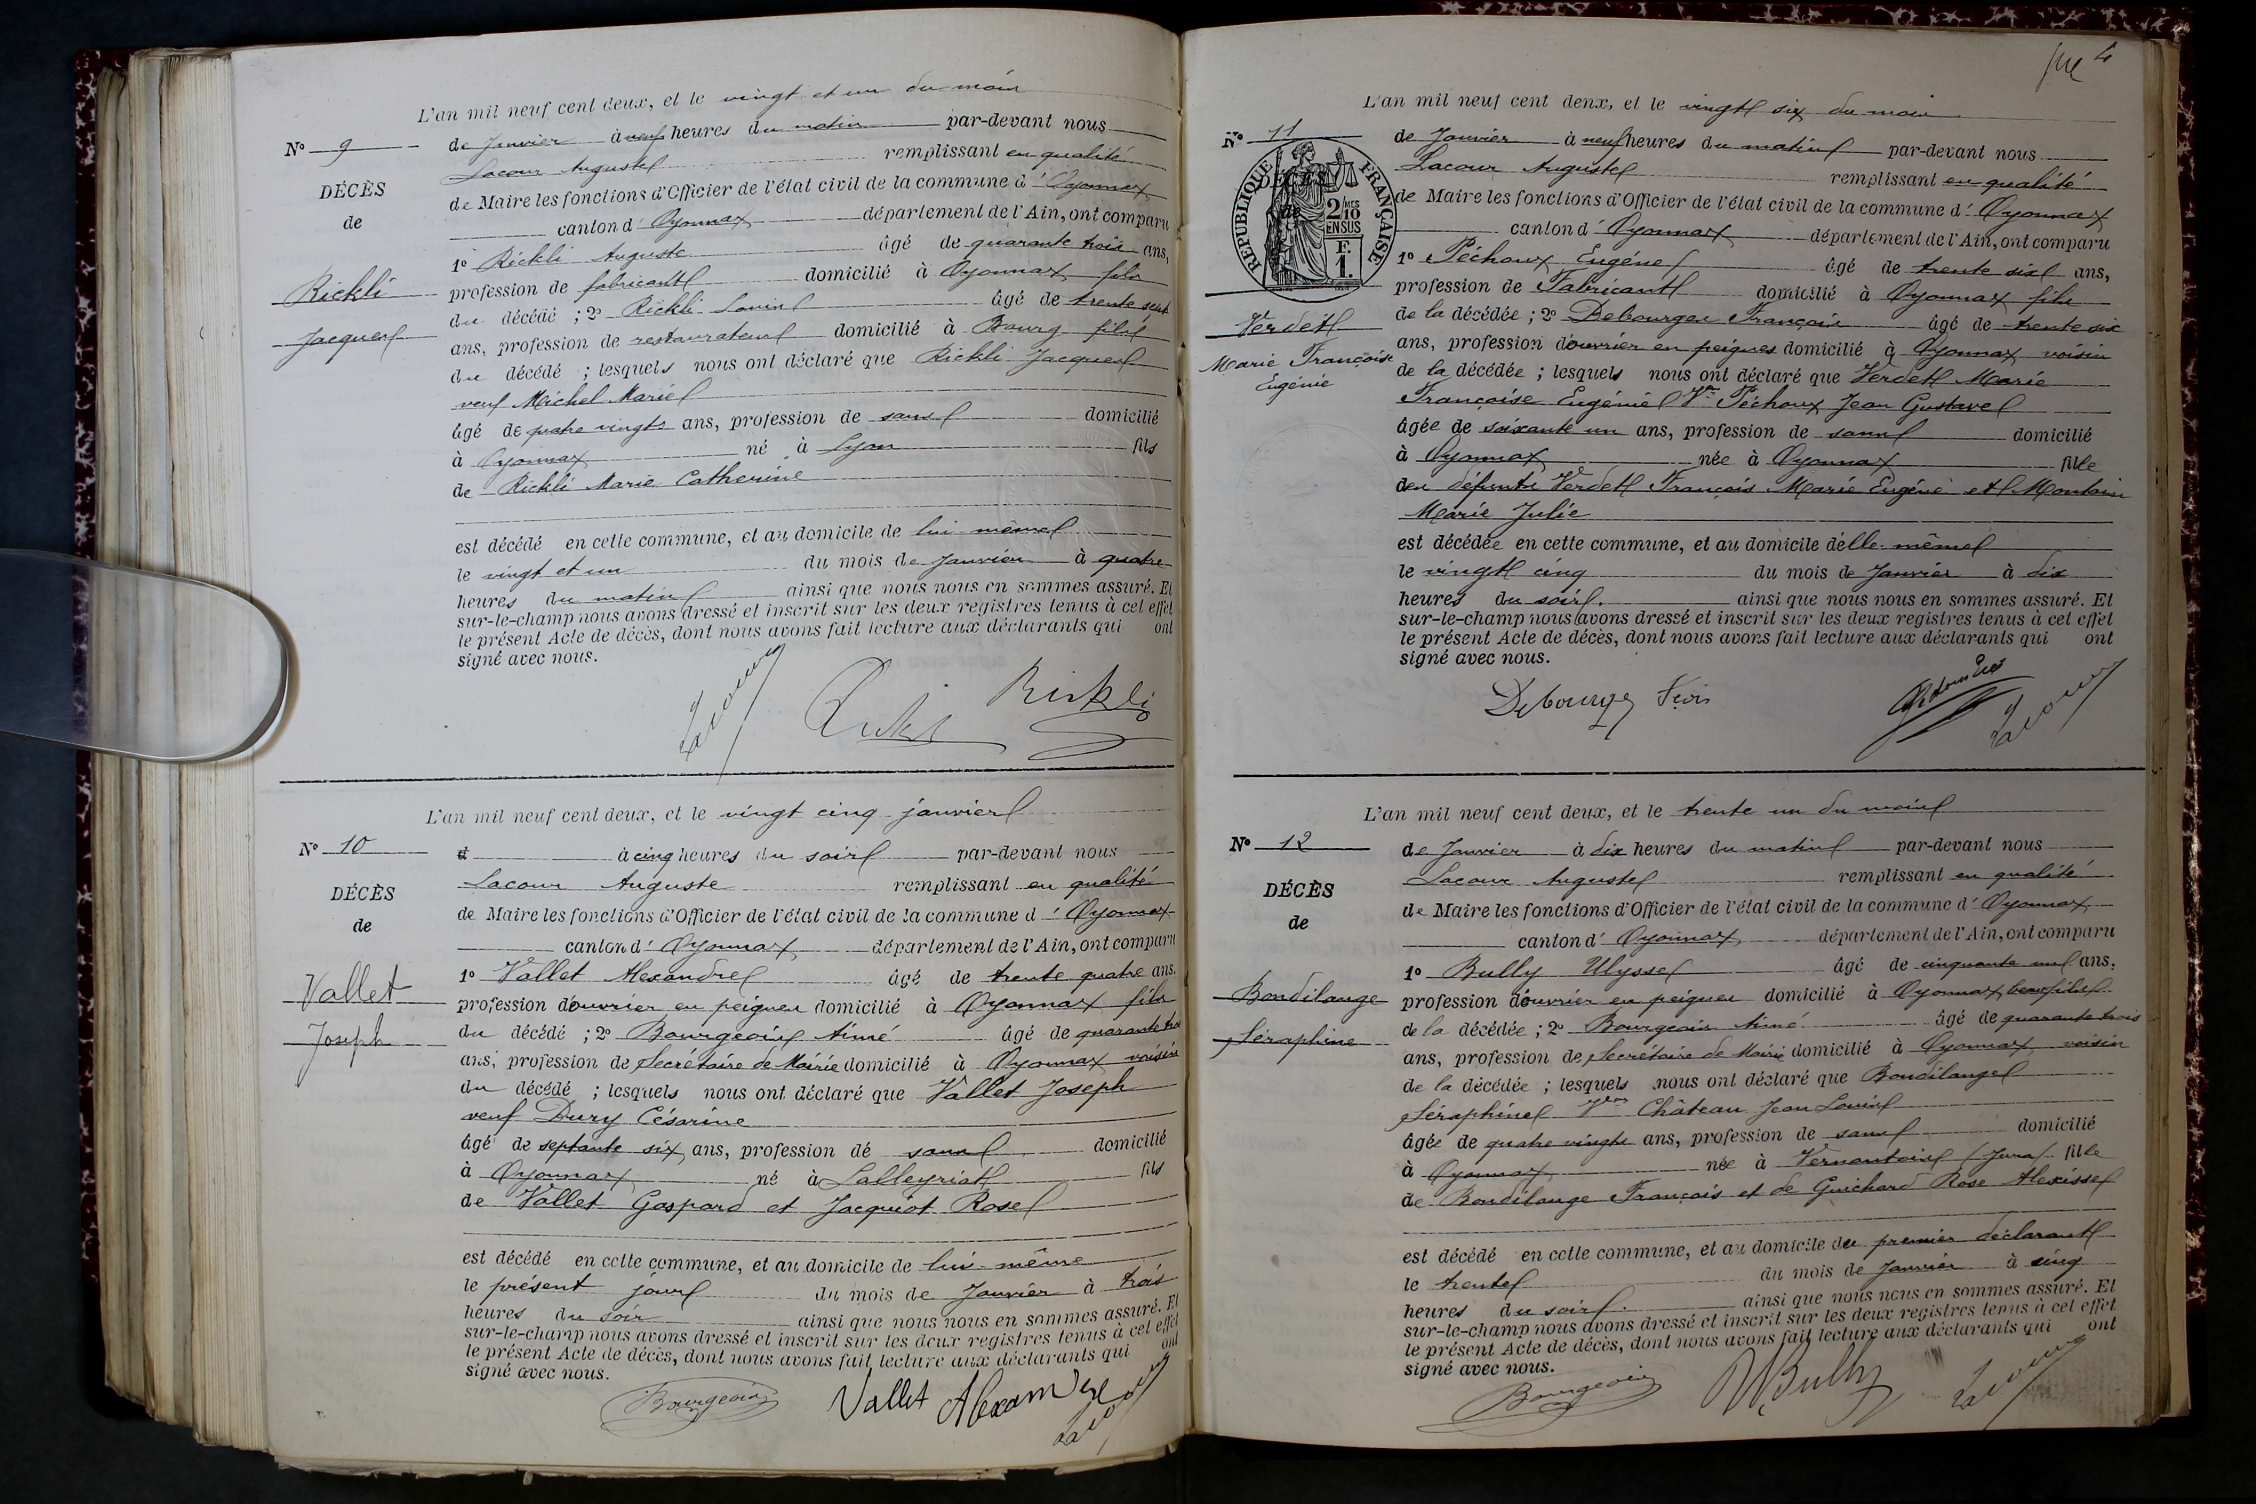 L'an mil neuf cent deux, et le vingt et un du mois
de Janvier à neuf heures du matin par-devant nous
Lacour Auguste remplissant en qualité
de Maire les fonctions d'Officier de l'état civil de la commune d' Oyonnax
canton d' Oyonnax département de l'Ain, ont comparu
1º Rickli Auguste âgé de quarante trois ans,
profession de fabricant domicilié à Oyonnax fils
du décédé ; 2º Rickli Louis âgé de trente sept
ans, profession de restaurateur domicilié à Bourg fils
du décédé ; lesquels nous ont déclaré que Rickli Jacques
veuf Michel Marie
âgé de quatre vingts ans, profession de sans domicilié
à Oyonnax né à Lyon fils
de Rickli Marie Catherine
est décédé en cette commune, et au domicile de lui même
le vingt et un du mois de Janvier à quatre
heures du matin ainsi que nous nous en sommes assuré. Et
sur-le-champ nous avons dressé et inscrit sur les deux registres tenus à cet effet
le présent Acte de décès, dont nous avons fait lecture aux déclarants qui ont
signé avec nous.
Nº 9
DÉCÈS
de
Rickli
Jacques
Lacour Rickli Rickli
L'an mil neuf cent deux, et le vingt cinq janvier
d à cinq heures du soir par-devant nous
Lacour Auguste remplissant en qualité
de Maire les fonctions d'Officier de l'état civil de la commune d' Oyonnax
canton d' Oyonnax département de l'Ain, ont comparu
1º Vallet Alexandre âgé de trente quatre ans.
profession d'ouvrier en peignes domicilié à Oyonnax fils
du décédé ; 2º Bourgeois Aimé âgé de quarante trois
ans, profession de Secrétaire de Mairie domicilié à Oyonnax voisin
du décédé ; lesquels nous ont déclaré que Vallet Joseph
veuf Dury Césarine
âgé de septante six ans, profession de sans domicilié
à Oyonnax né à Lalleyriat fils
de Vallet Gaspard et Jacquiot Rose
est décédé en cette commune, et au domicile de lui-même
le présent jour du mois de Janvier à trois
heures du soir ainsi que nous nous en sommes assuré. Et
sur-le-champ nous avons dressé et inscrit sur les deux registres tenus à cet effet
le présent Acte de décès, dont nous avons fait lecture aux déclarants qui ont
signé avec nous.
Nº 10
DÉCÈS
de
Vallet
Joseph
Bourgeois Vallet Alexandre Lacour
4
L'an mil neuf cent deux, et le vingt six du mois
de Janvier à neuf heures du matin par-devant nous
Lacour Auguste remplissant en qualité
de Maire les fonctions d'Officier de l'état civil de la commune d' Oyonnax
canton d' Oyonnax département de l'Ain, ont comparu
1º Péchoux Eugène âgé de trente six ans,
profession de Fabricant domicilié à Oyonnax fils
de la décédée ; 2º Debourges François âgé de trente six
ans, profession d'ouvrier en peignes domicilié à Oyonnax voisin
de la décédée ; lesquels nous ont déclaré que Verdet Marie
Françoise Eugénie Vve Péchoux Jean Gustave
âgée de soixante un ans, profession de sans domicilié
à Oyonnax née à Oyonnax fille
des défunts Verdet François Marie Eugène et Montain
Marie Julie
est décédée en cette commune, et au domicile d'elle-même
le vingt cinq du mois de Janvier à dix
heures du soir. ainsi que nous nous en sommes assuré. Et
sur-le-champ nous avons dressé et inscrit sur les deux registres tenus à cet effet
le présent Acte de décès, dont nous avons fait lecture aux déclarants qui ont
signé avec nous.
Nº 11
DÉCÈS
de
REPUBLIQUE FRANÇAISE
2/10 MES
EN SUS
F.
1.
Verdet
Marie Françoise
Eugénie
Debourges Fçois Lacour
L'an mil neuf cent deux, et le trente un du mois
de Janvier à dix heures du matin par-devant nous
Lacour Auguste remplissant en qualité
de Maire les fonctions d'Officier de l'état civil de la commune d' Oyonnax
canton d' Oyonnax département de l'Ain, ont comparu
1º Bully Ulysse âgé de cinquante un ans,
profession d'ouvrier en peignes domicilié à Oyonnax beau fils
de la décédée ; 2º Bourgeois Aimé âgé de quarante trois
ans, profession de Secrétaire de Mairie domicilié à Oyonnax voisin
de la décédée ; lesquels nous ont déclaré que Bondilange
Séraphine Vve Château Jean Louis
âgée de quatre vingts ans, profession de sans domicilié
à Oyonnax née à Vernantois (Jura) fille
de Bondilange François et de Guichard Rose Alexisse
est décédé en cette commune, et au domicile du premier déclarant
le trente du mois de Janvier à cinq
heures du soir. ainsi que nous nous en sommes assuré. Et
sur-le-champ nous avons dressé et inscrit sur les deux registres tenus à cet effet
le présent Acte de décès, dont nous avons fait lecture aux déclarants qui ont
signé avec nous.
Nº 12
DÉCÈS
de
Bondilange
Séraphine
Bourgeois Bully Lacour